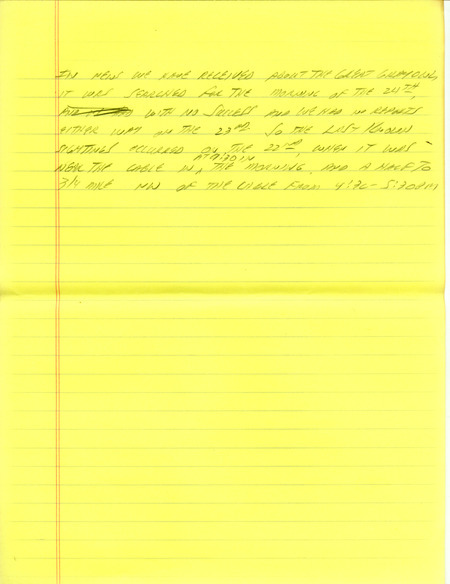 IN NEWS WE HAVE RECEIVED ABOUT THE GREAT
IT WAS SEARCHED FOR THE MORNING OF THE 24TH,
WITH NO SUCCESS AND WE HAD NO REPORTS
EITHER WAY ON THE 23RD SO THE LAST KNOWN
SIGHTINGS OCCURRED ON THE 22ND, WHEN IT WAS
NEAR THE CABLE IN, AT 9:30 IN THE MORNING, AND A HALF TO
3/4 MILE NW OF THE CABLE FROM 4:30-5:30PM